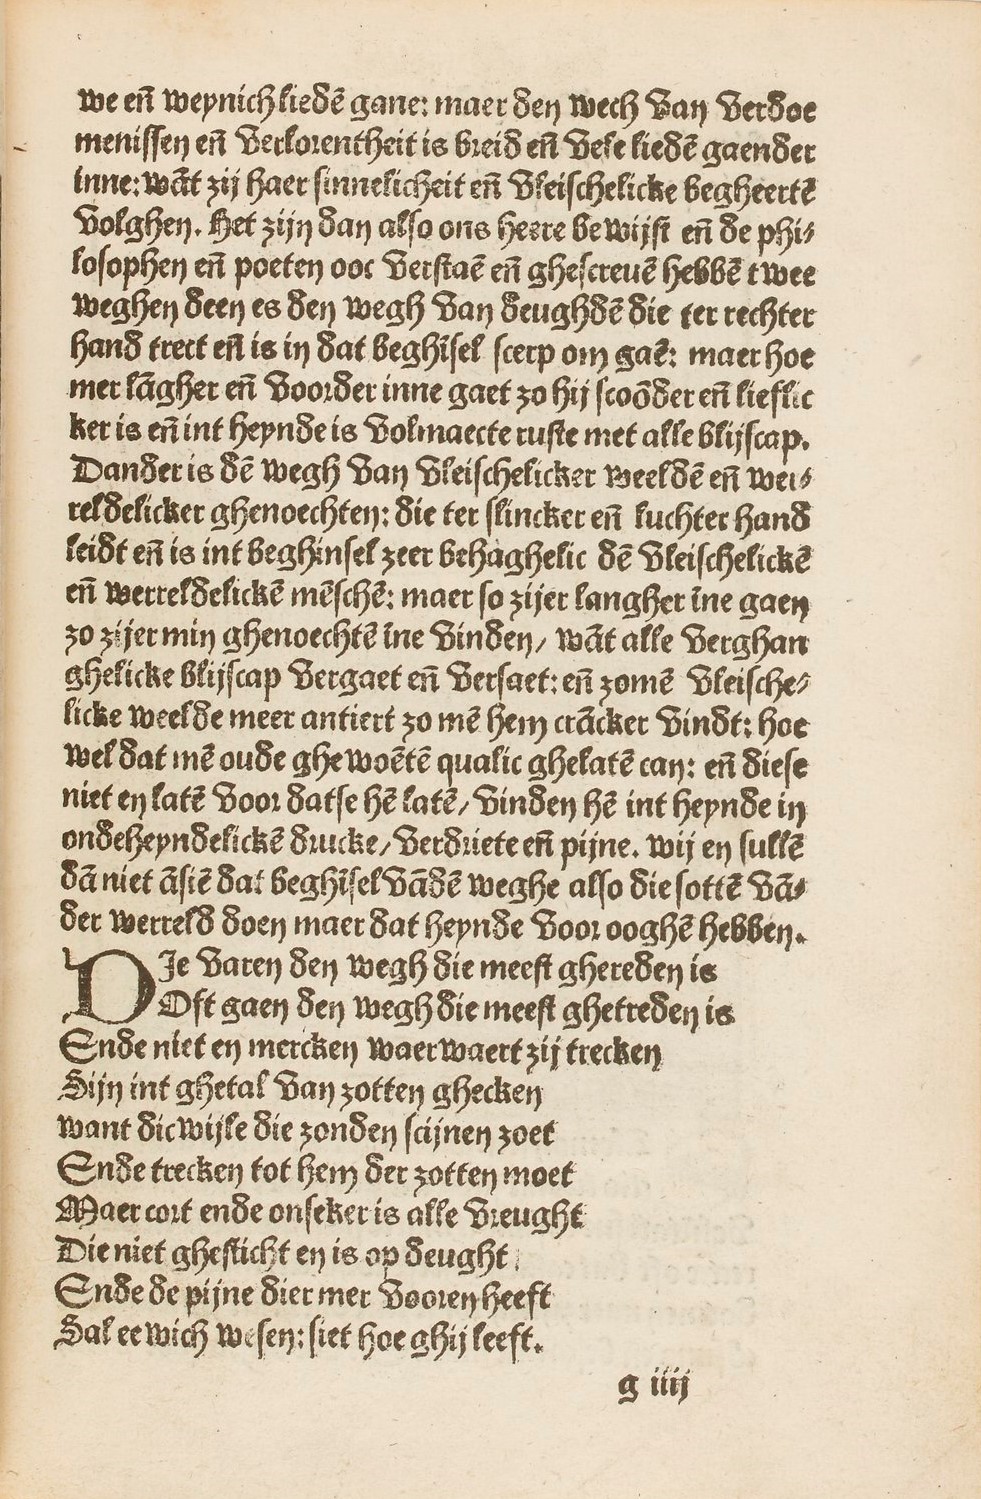 we en̄ weynich liedē gane: maer den wech van verdoe
menissen en̄ verlorentheit is breid en̄ vele liedē gaender
inne: wāt zij haer sinnelicheit en̄ vleischelicke begheertē
volghen. Het zijn dan also ons heere bewijst en̄ de phi⸗
losophen en̄ poeten ooc verstaē en̄ ghescreuē hebbē twee
weghen deen es den wegh van deughdē die ter rechter
hand trect en̄ is in dat beghīsel scerp om gaē: maer hoe
mer lāgher en̄ voorder inne gaet zo hij scoōder en̄ lieflic
ker is en̄ int heynde is volmaecte ruste met alle blijscap.
Dander is dē wegh van vleischelicker weeldē en̄ wer⸗
reldelicker ghenoechten: die ter slincker en̄ luchter hand
leidt en̄ is int beghinsel zeer behaghelic dē vleischelickē
en̄ werreldelickē mēschē: maer so zijer langher īne gaen
zo zijer min ghenoechtē īne vinden/ wāt alle verghan
ghelicke blijscap vergaet en̄ versaet: en̄ zomē vleische⸗
licke weelde meer antiert zo mē hem crācker vindt: hoe
wel dat mē oude ghewoētē qualic ghelatē can: en̄ diese
niet en latē voor datse hē latē/ vinden hē int heynde in
ondeheyndelickē drucke/ verdriete en̄ pijne. wij en sullē
dā niet āsiē dat beghīsel vādē weghe also die sottē vā⸗
der werreld doen maer dat heynde voor ooghē hebben.
DIe varen den wegh die meest ghereden is
Oft gaen den wegh die meest ghetreden is
Ende niet en mercken waerwaert zij trecken
Sijn int ghetal van zotten ghecken
want dicwijle die zonden scijnen zoet
Ende trecken tot hem der zotten moet
Maer cort ende onseker is alle vreught
Die niet ghesticht en is op deught
Ende de pijne dier mer vooren heeft
Sal eewich wesen: siet hoe ghij leeft.
g iiij